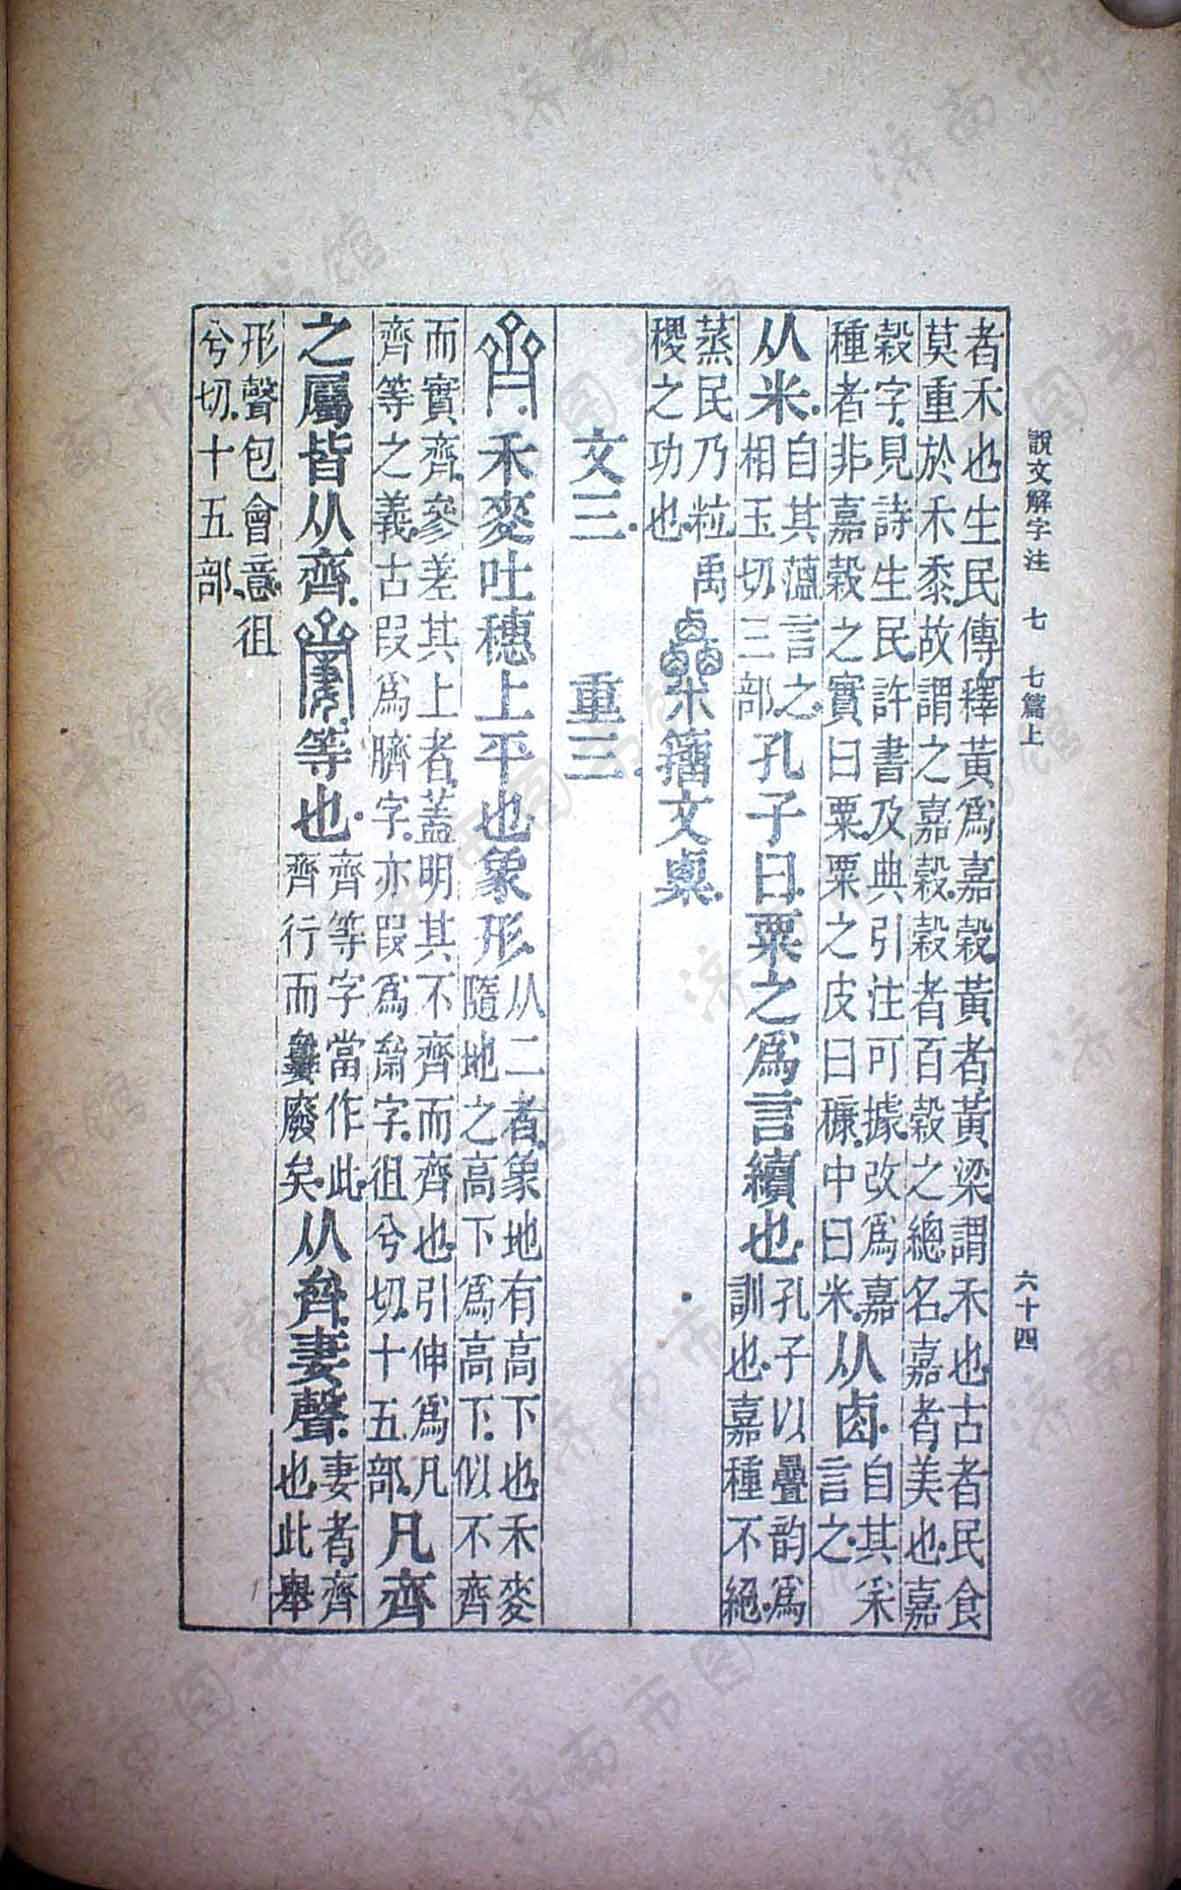 說文解字注 七 七篇上 六十四
者禾也生民傳釋黃爲嘉穀黃者黃梁謂禾也古者民食
莫重於禾黍故謂之嘉穀穀者百穀之總名嘉者美也嘉
穀字見詩生民許書及典引注可據改爲嘉
種者非嘉穀之實曰粟粟之皮曰穅中曰米
从𠧪
自其采
言之
从米
自其薀言之
相玉切三部
孔子曰粟之爲言續也
孔子以疊韵爲
訓也嘉種不絕
蒸民乃粒禹
稷之功也
籒文㮚
文三 重三
齊禾麥吐穗上平也象形
从二者象地有高下也禾麥
隨地之高下爲高下似不齊
而實齊參差其上者蓋明其不齊而齊也引伸爲凡
齊等之義古叚爲臍字亦叚爲字徂兮切十五部
凡齊
之屬皆从齊𪗌等也
齊等字當作此
齊行而𪗌廢矣
从齊妻聲
妻者齊
也此舉
形聲包會意徂
兮切十五部